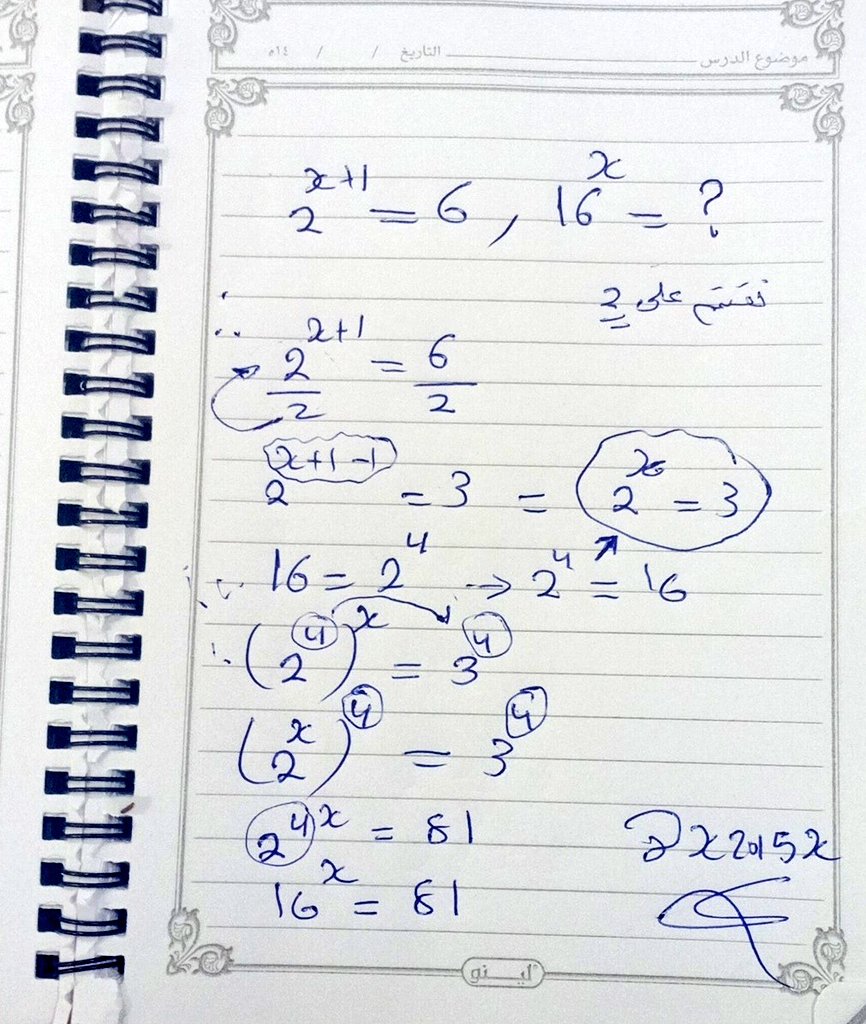 موضوع الدرس التاريخ / / ١٤هـ
2^{x+1} = 6 , 16^x = ?
نقسم على 2
∴ \frac{2^{x+1}}{2} = \frac{6}{2}
2^{x+1-1} = 3 = 2^x = 3
∵ 16 = 2^4 → 2^4 = 16
∴ (2^4)^x = 3^4
(2^x)^4 = 3^4
2^{4x} = 81
16^x = 81
لينو